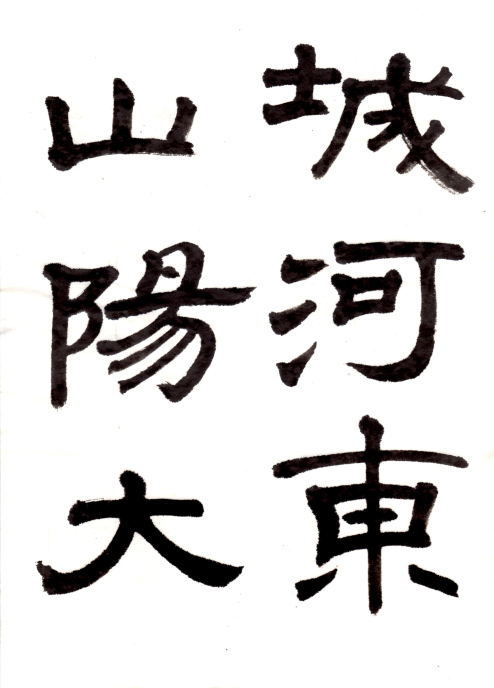 城河東
山陽大